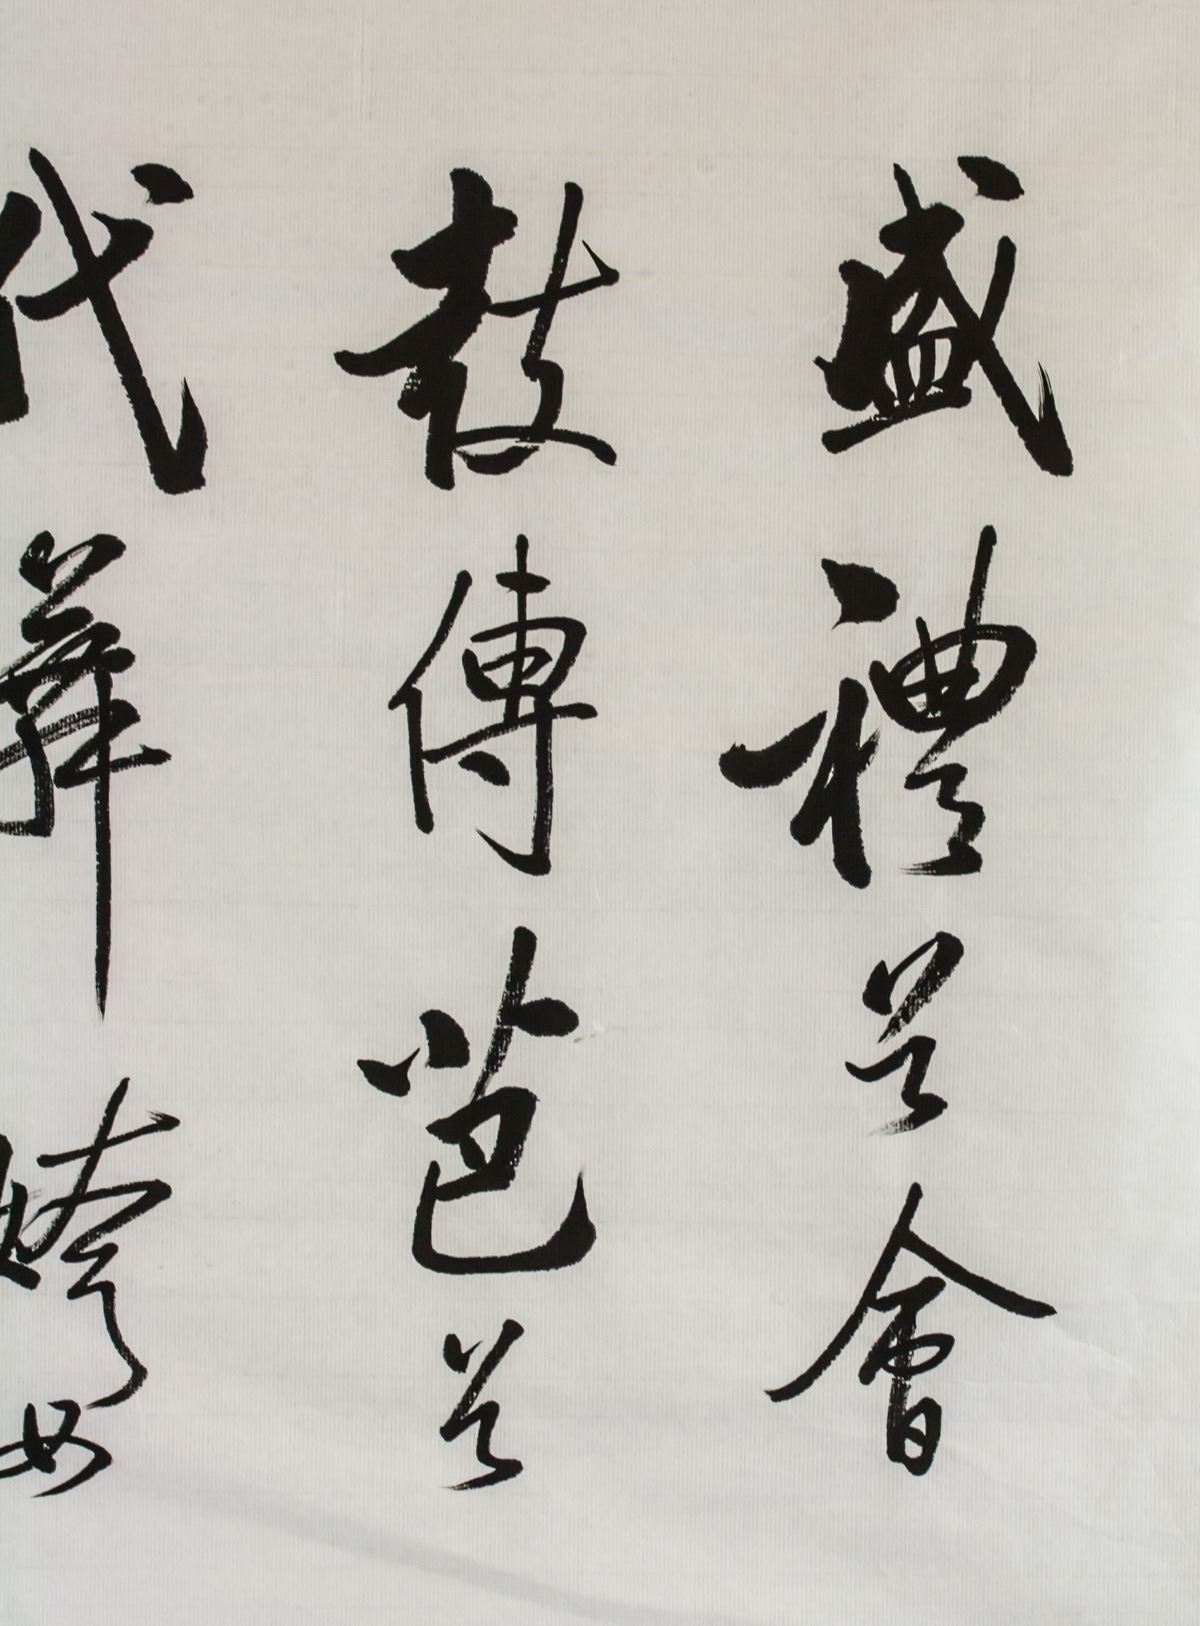 盛禮兮會
鼓傳芭兮
代舞姱女